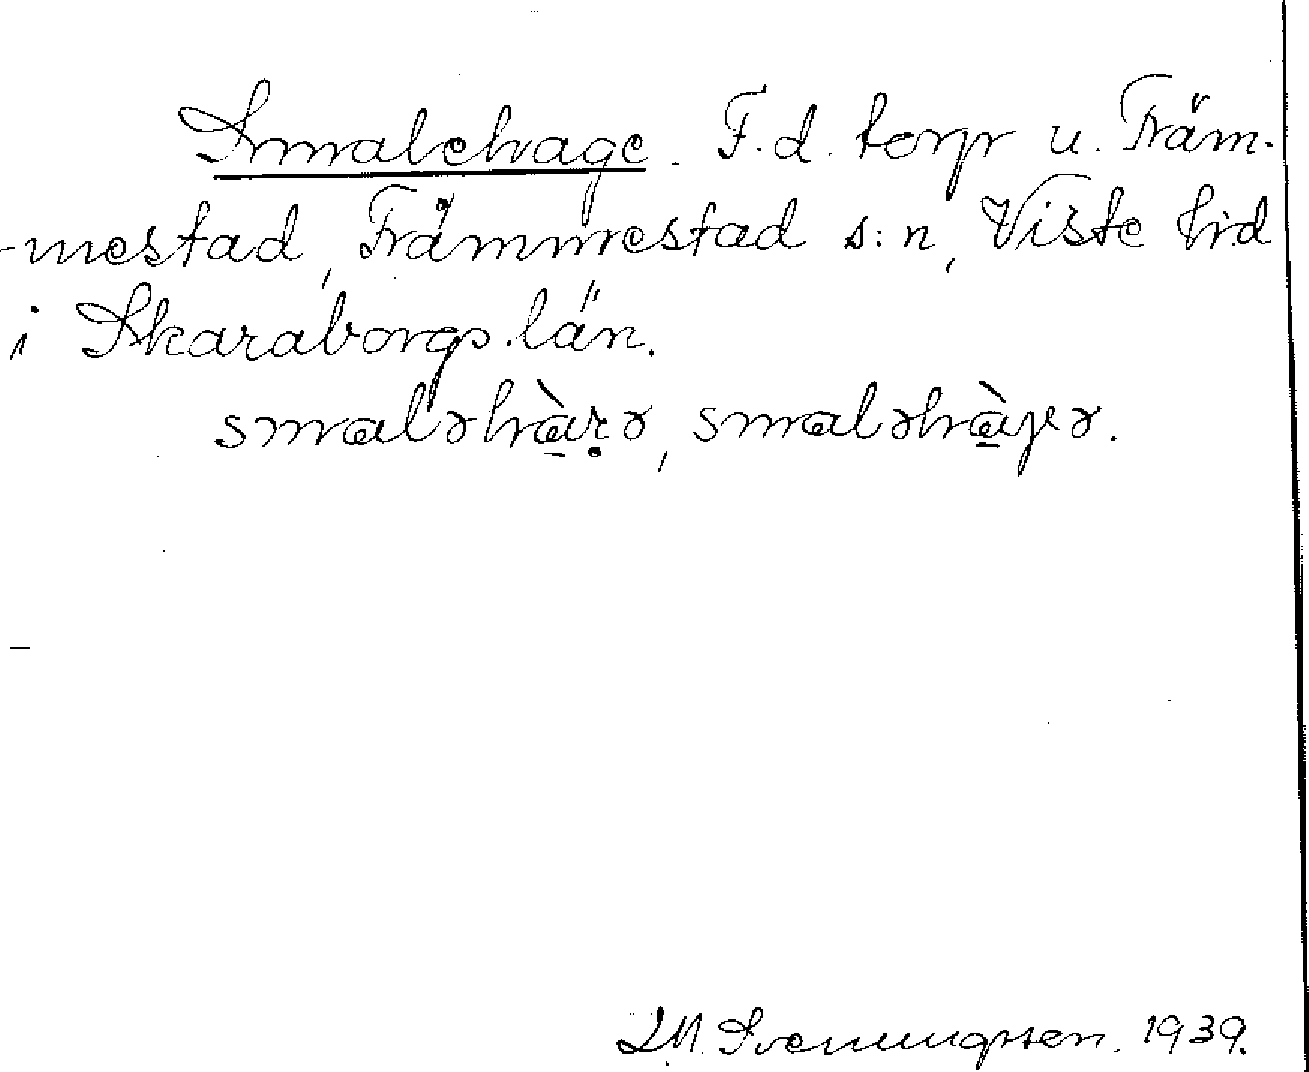 Smalehage. F.d. torp u. Främ-
mestad, Främmestad s:n, Viste hd
i Skaraborgs län.
smaləhàrə, smaləhàgə.
Svenungsson. 1939.